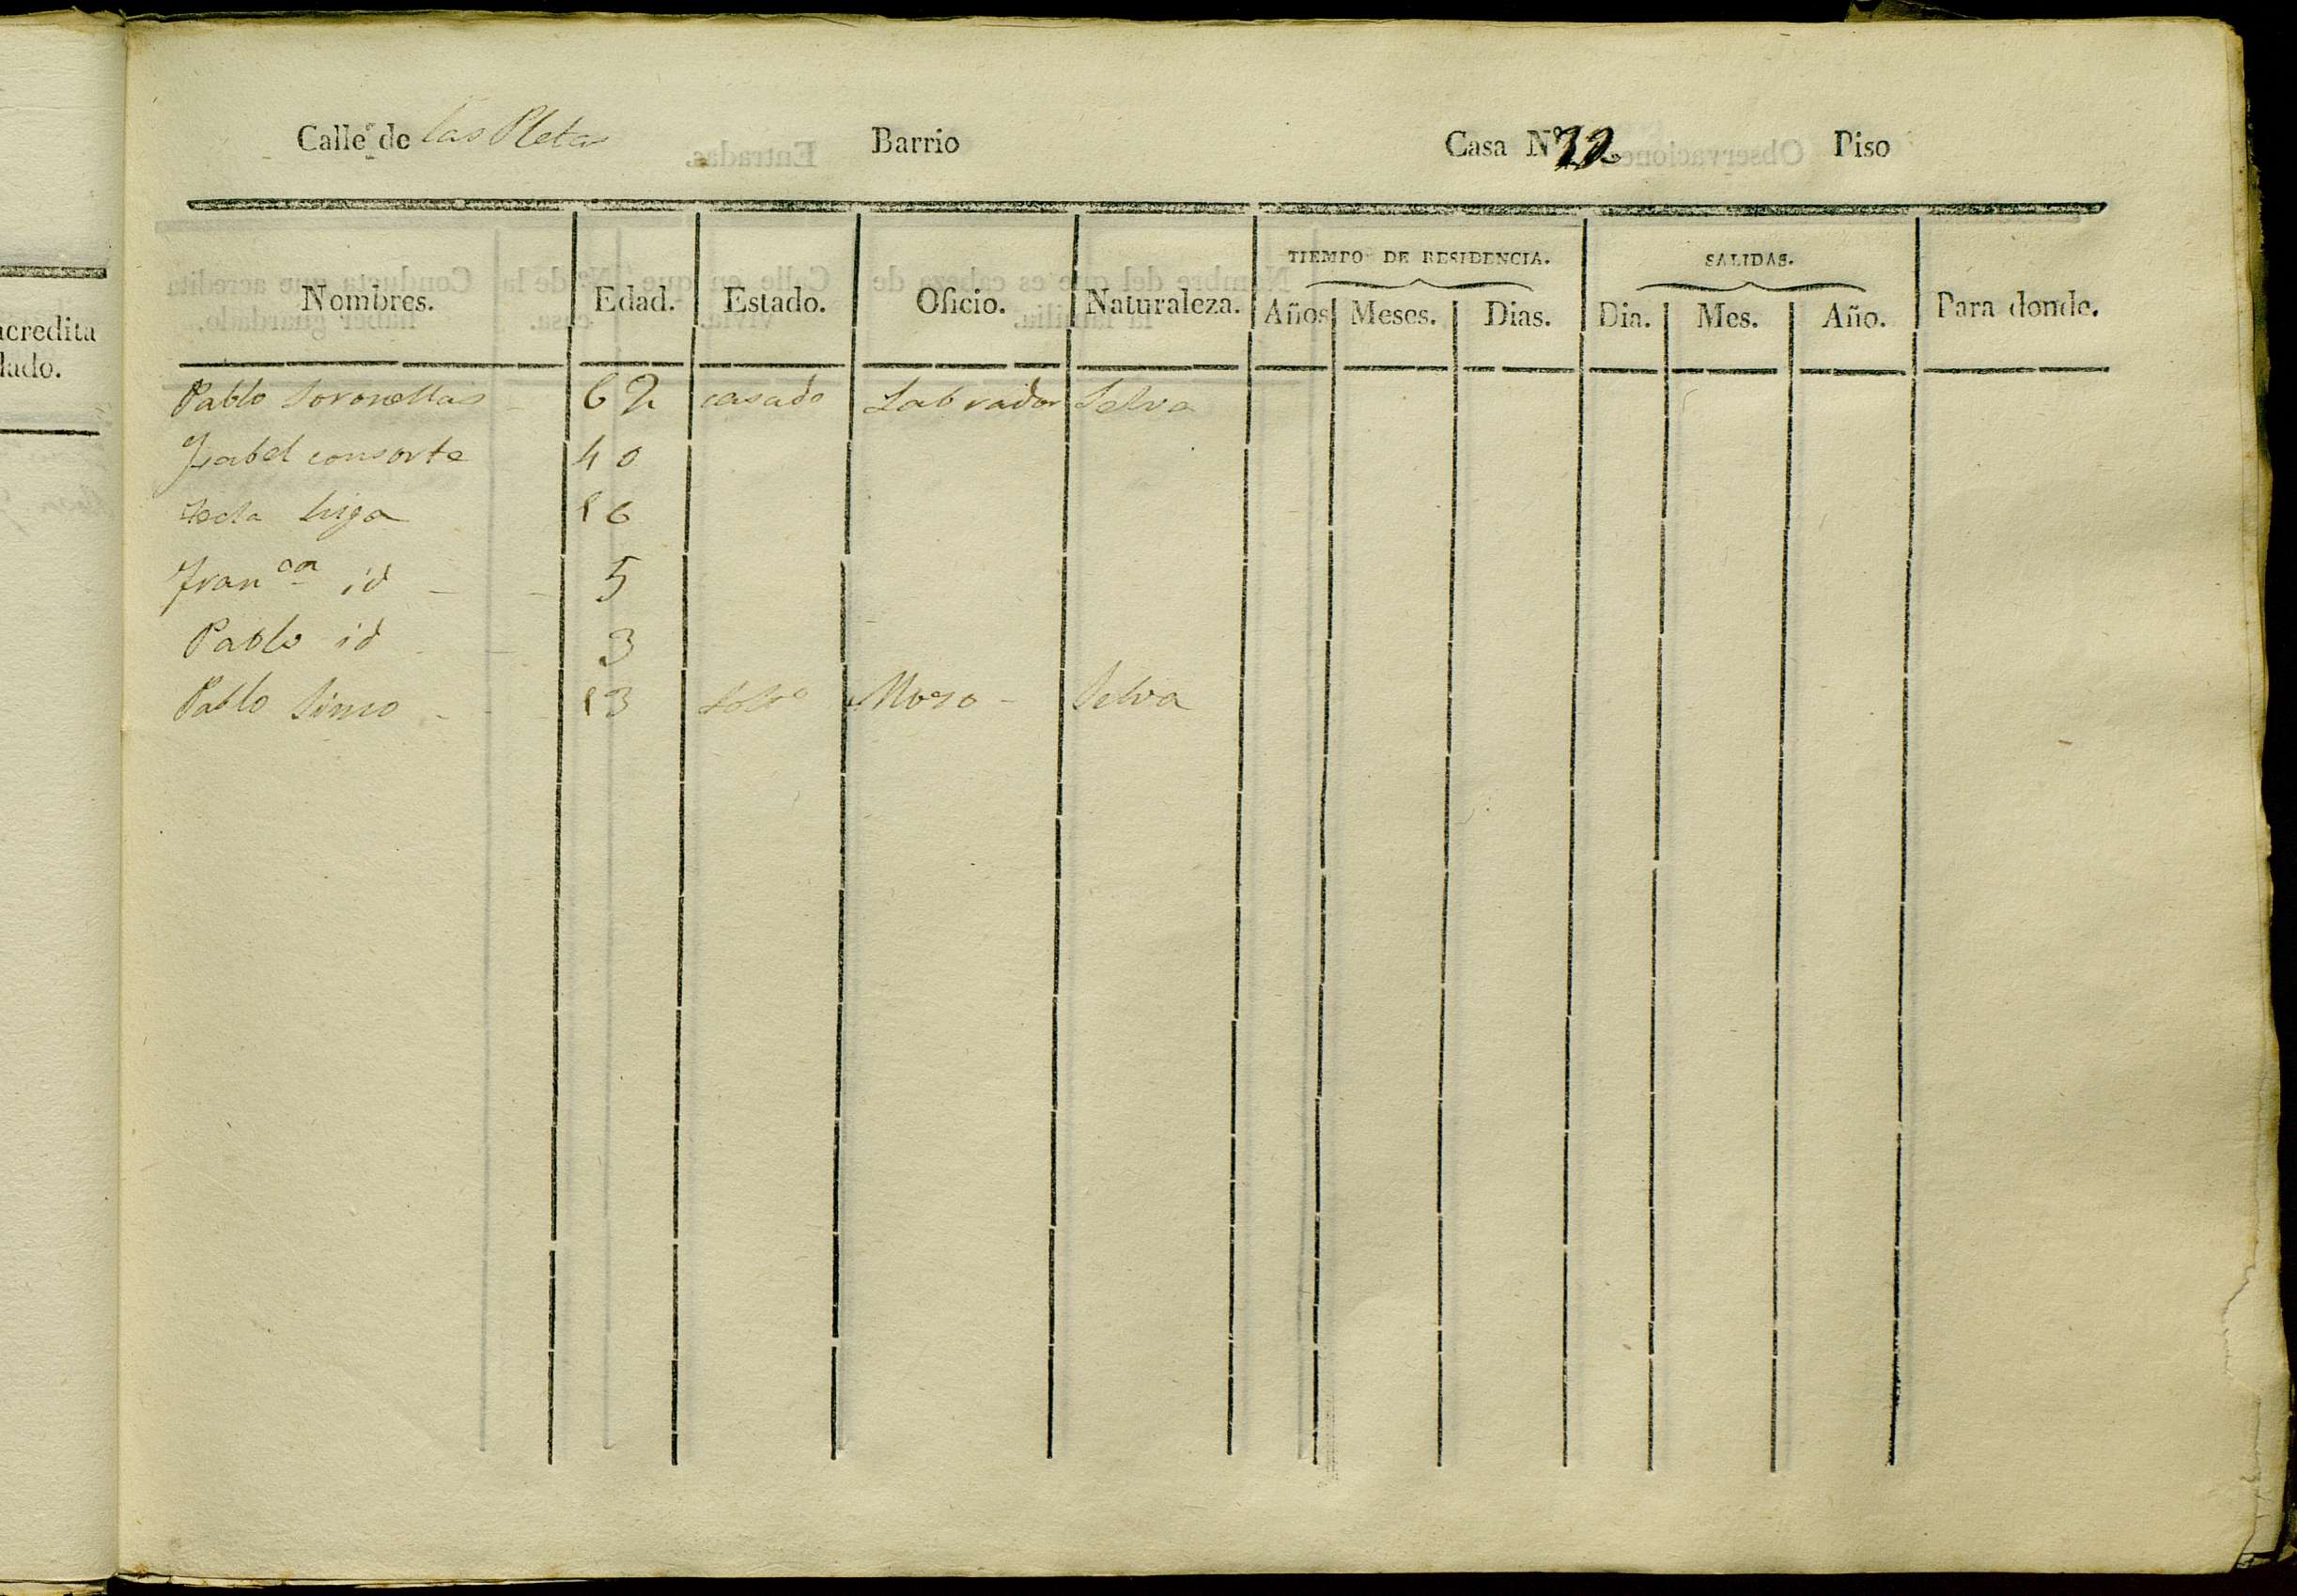 Calle de las Pletas Barrio Casa Nº Piso
TIEMPO DE RESIDENCIA. SALIDAS.
Nombres. Edad. Estado. Oficio. Naturaleza. Años Meses. Dias. Dia. Mes. Año. Para donde.
Pablo Soronellas 62 casado Labrador Selva
Isabel consorte 40
Tecla hija 16
Fran^ca id 5
Pablo id 3
Pablo Simo 13 Solº Moso Selva
acredita
lado.